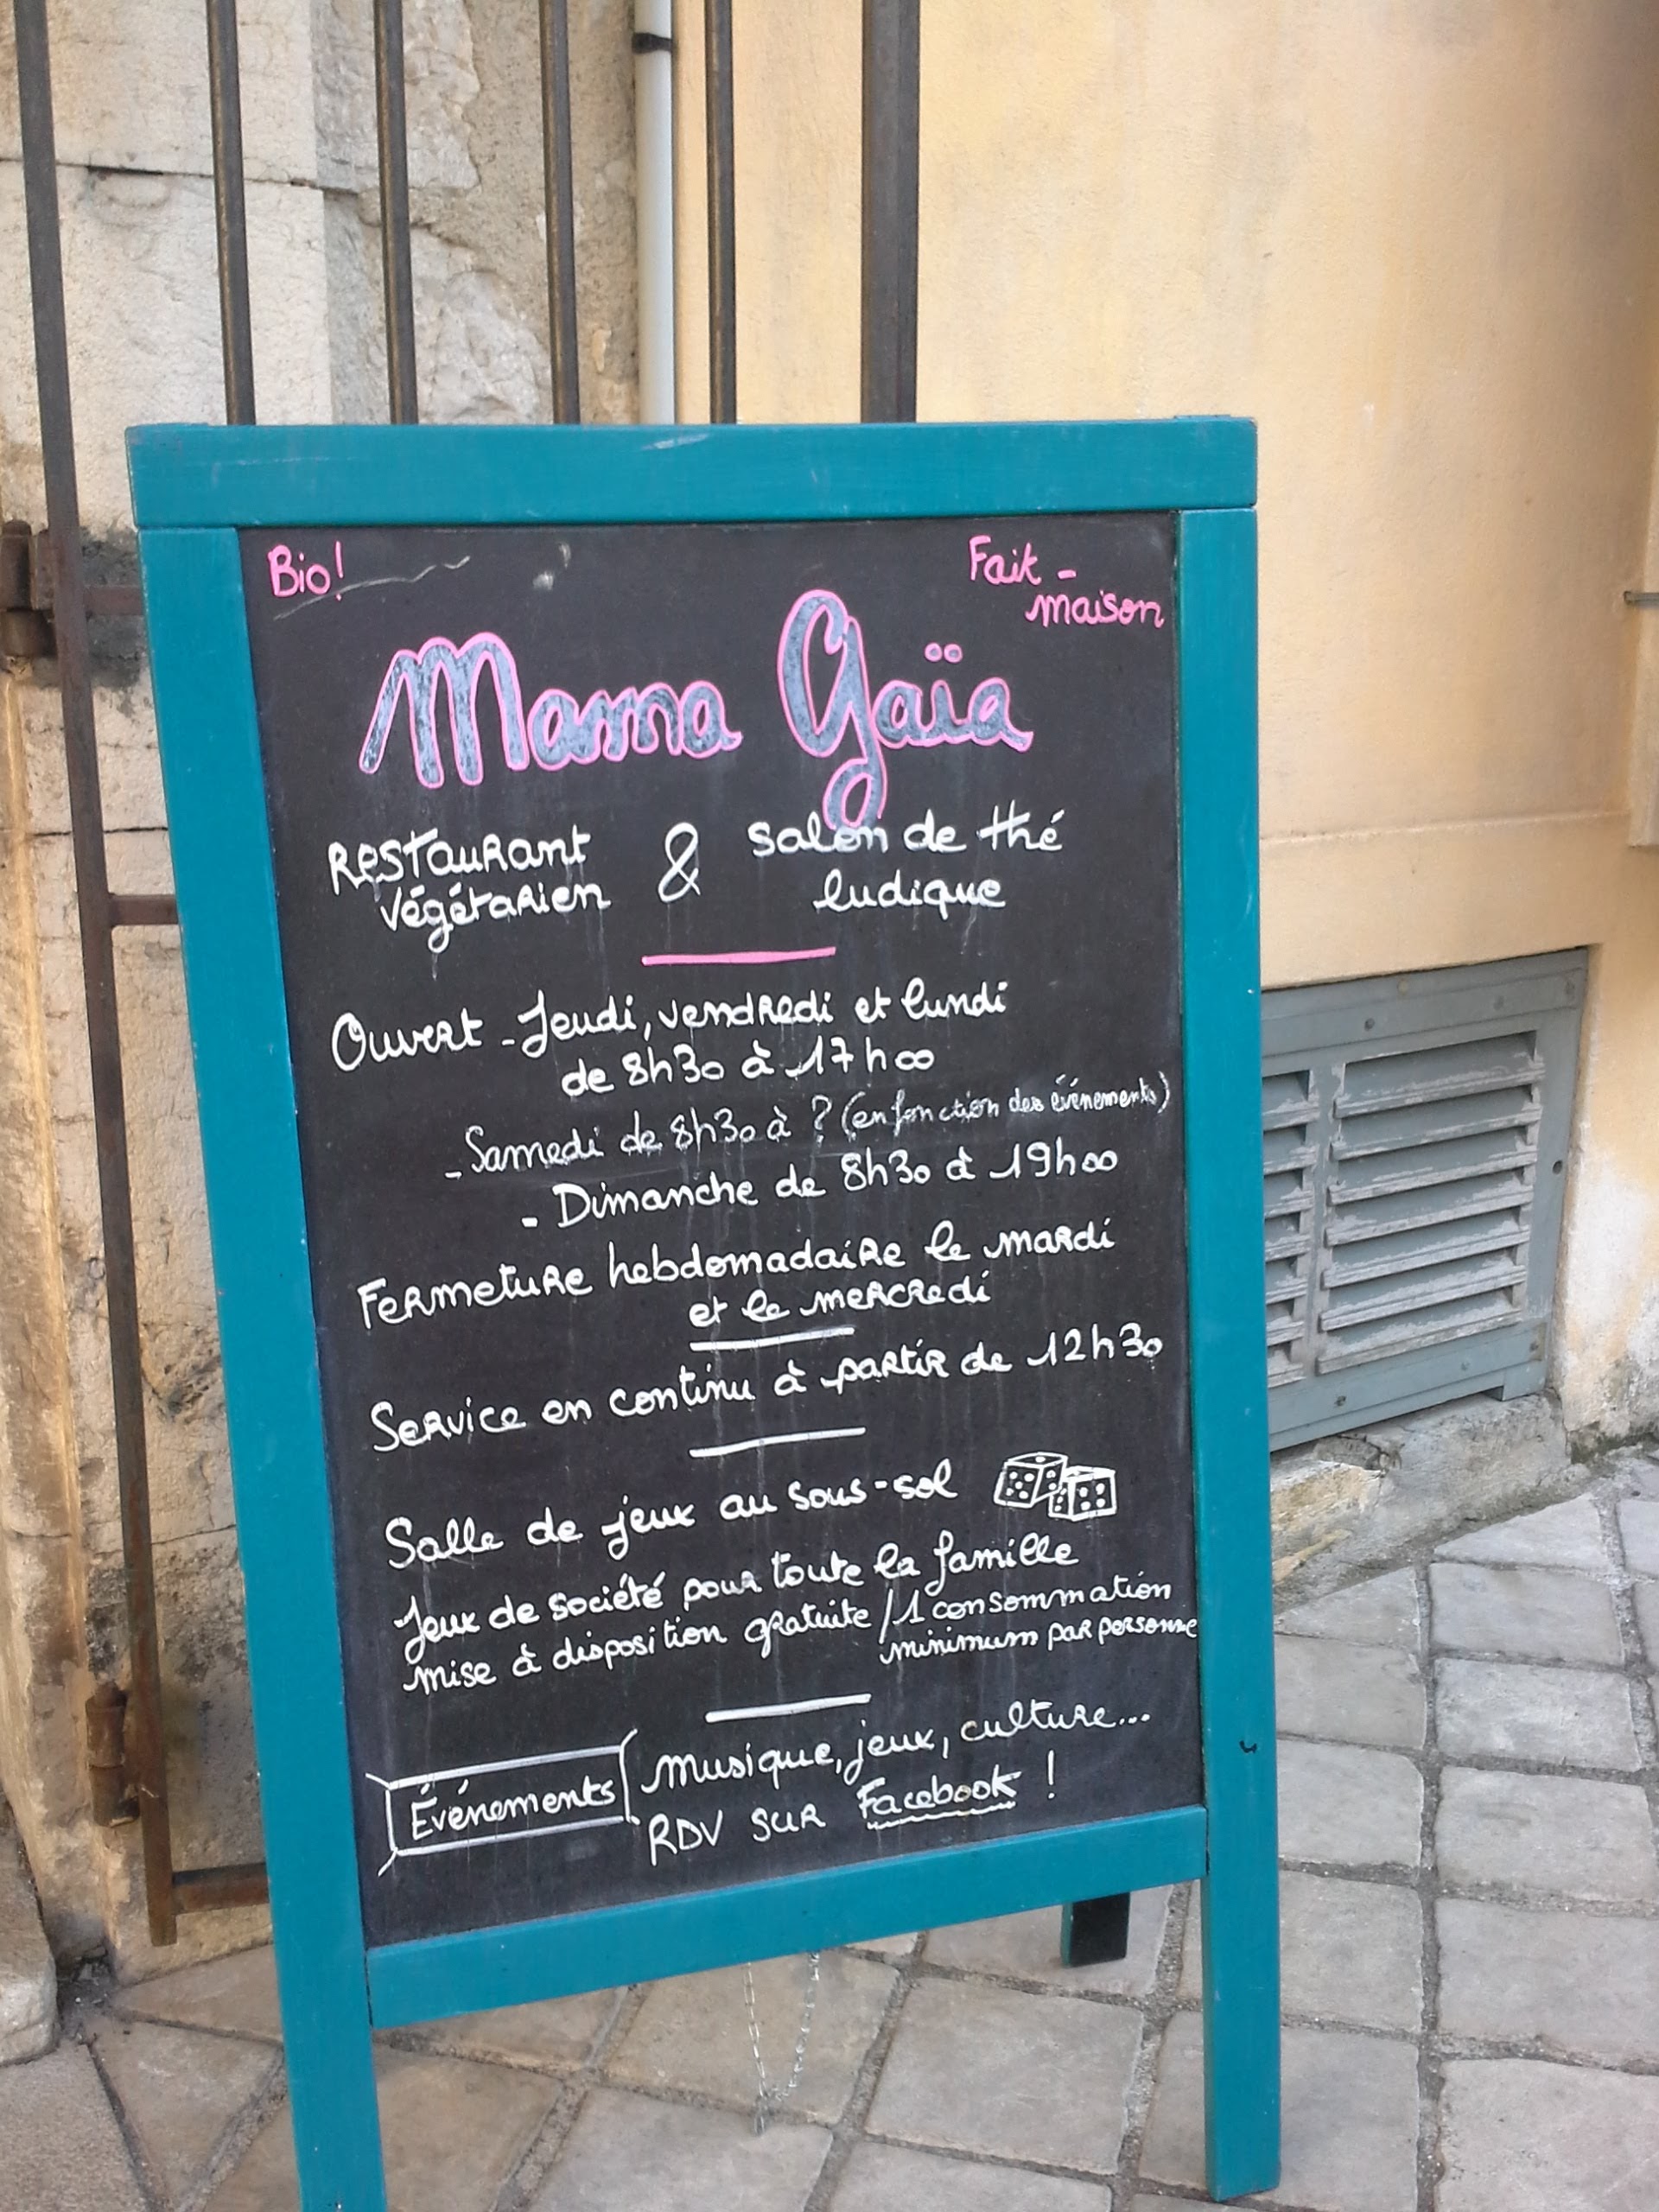 Bio!
Fait-
maison
Mama Gaïa
Restaurant
végétarien
&
salon de thé
ludique
Ouvert - Jeudi, vendredi et lundi
de 8h30 à 17h00
- Samedi de 8h30 à ? (en fonction des événements)
- Dimanche de 8h30 à 19h00
Fermeture hebdomadaire le mardi
et le mercredi
Service en continu à partir de 12h30
Salle de jeux au sous-sol
Jeux de société pour toute la famille
mise à disposition gratuite / 1 consommation
minimum par personne
Événements
musique, jeux, culture...
RDV sur Facebook !